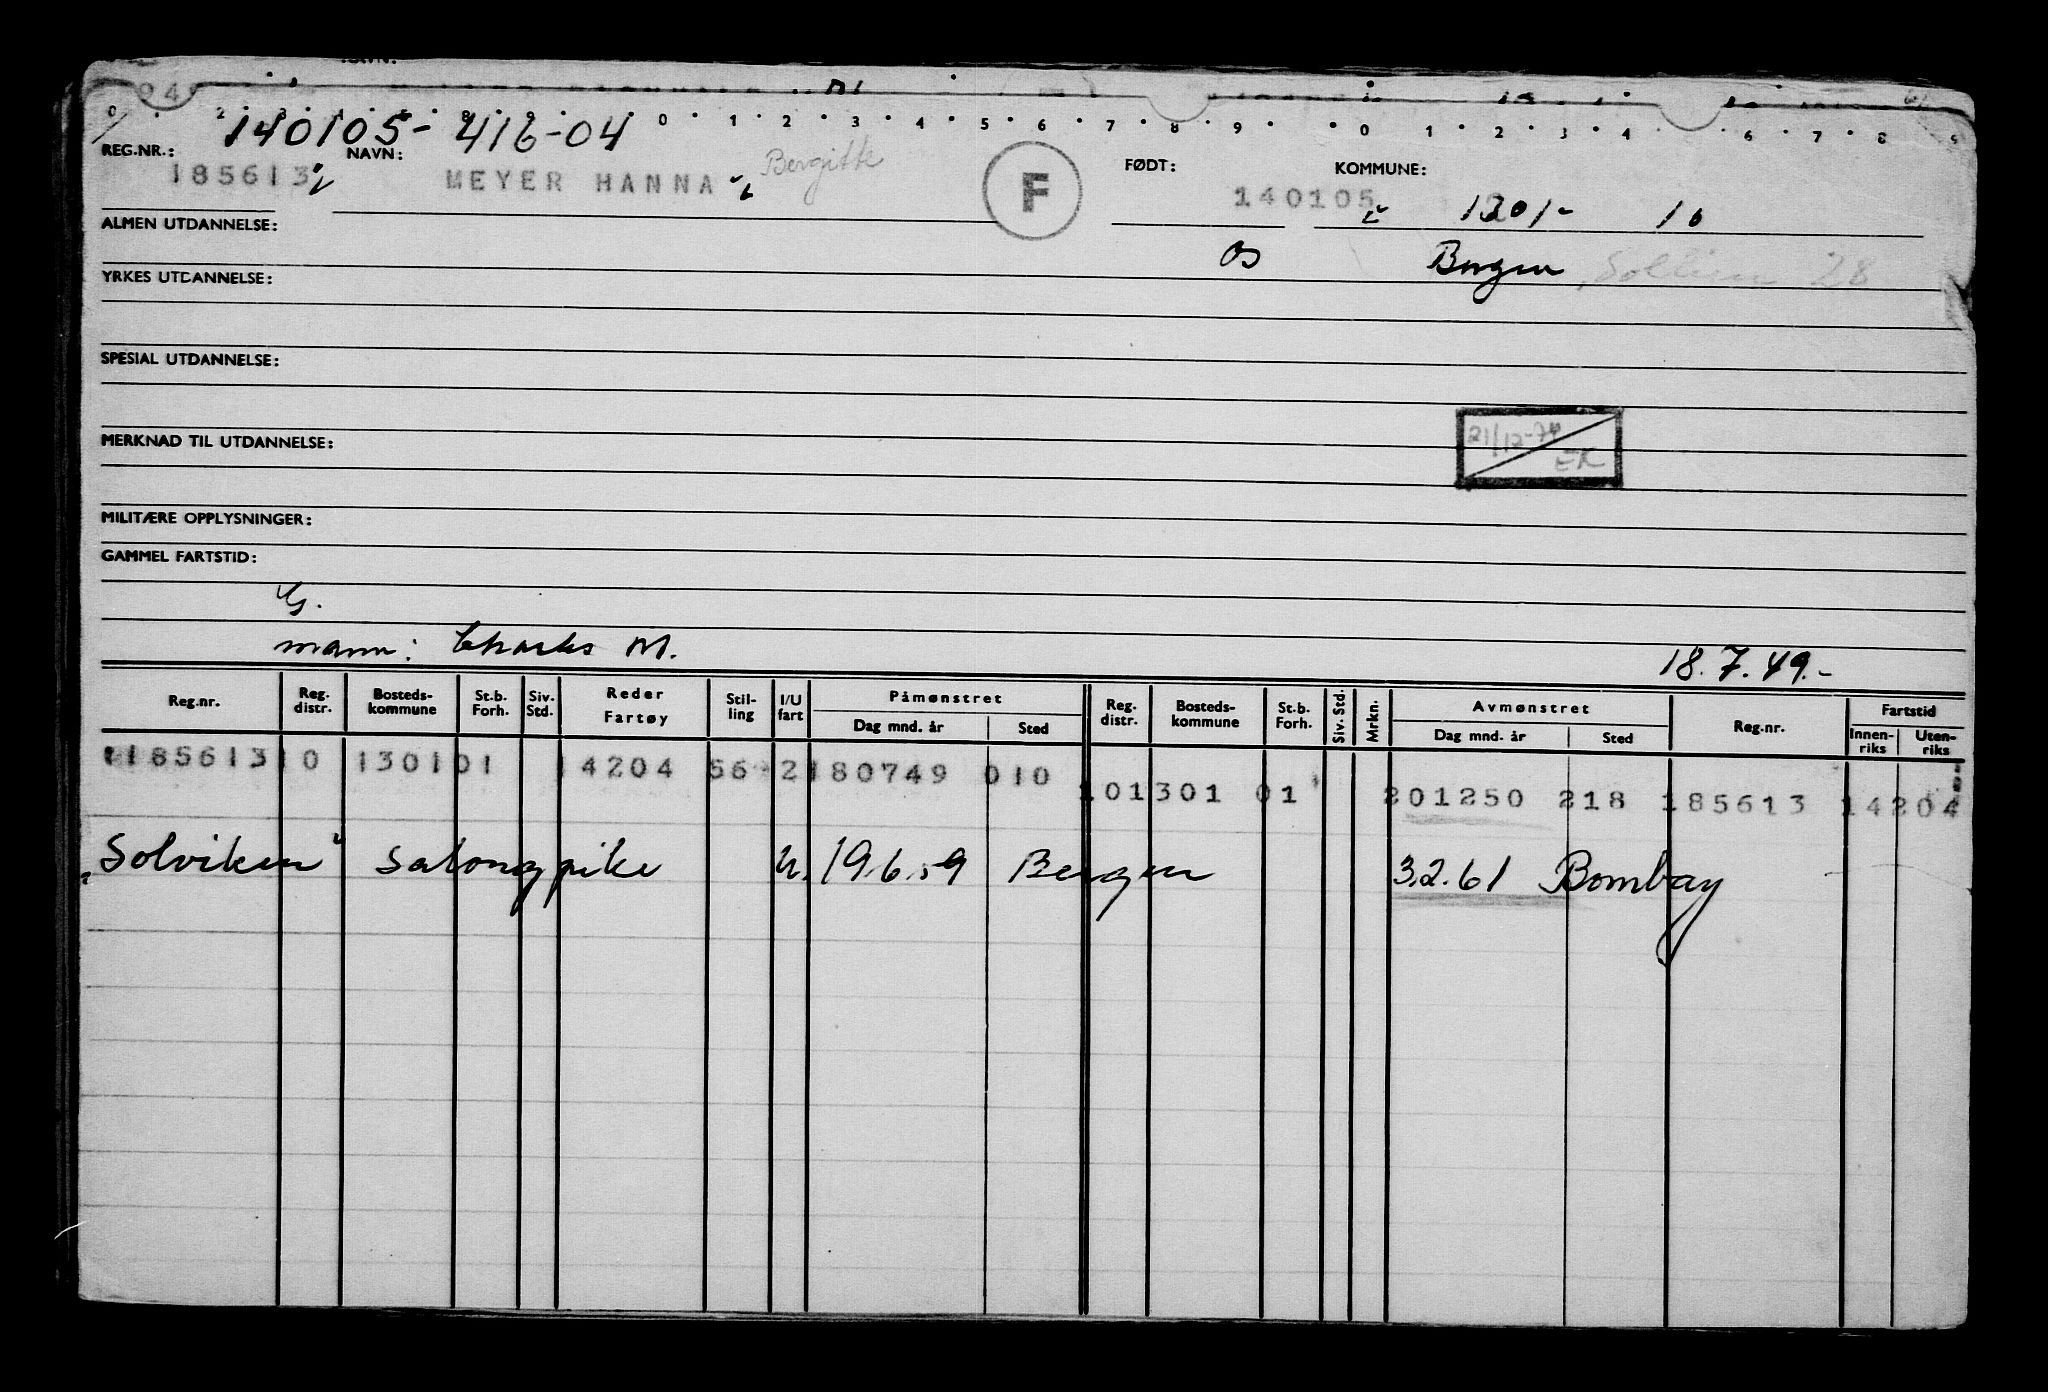 140105-41604
REG.NR.: NAVN: FØDT: KOMMUNE:
185613 MEYER HANNA Bergitte F 140105 1301- 10
ALMEN UTDANNELSE:
Os Bergen, 28
YRKES UTDANNELSE:
SPESIAL UTDANNELSE:
MERKNAD TIL UTDANNELSE:
21/12-74
EK
MILITÆRE OPPLYSNINGER:
GAMMEL FARTSTID:
G.
mann: Charles M. 18.7.49.-
Reg.nr. Reg. distr. Bosteds-kommune St.b. Forh. Siv. Std. Reder Fartøy Stil-ling I/U fart Påmønstret Dag mnd. år Sted Reg. distr. Bosteds-kommune St.b. Forh. Siv. Std. Mrkn. Avmønstret Dag mnd. år Sted Reg.nr. Fartstid Innen-riks Uten-riks
185613 10 1301 01 14204 56 2 180749 010 10 1301 01 201250 218 185613 14204
"Solviken" salongpike U. 19.6.59 Bergen 3.2.61 Bombay